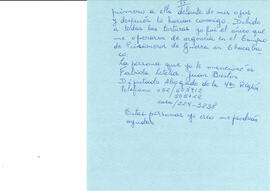 II
primero a ella delante de mis ojos
y después lo hacían conmigo. Debido
a todas las torturas yo fui el único que
me operaron de urgencia en el Campo
de Prisioneros de Guerra en Chacabu
co
La persona que yo le mencioné
Fabiola Letelier Juan Bustos
Diputado Abogado de la Región
Teléfono 032/
casa/224-3238
Estas personas yo creo me podrían
ayudar